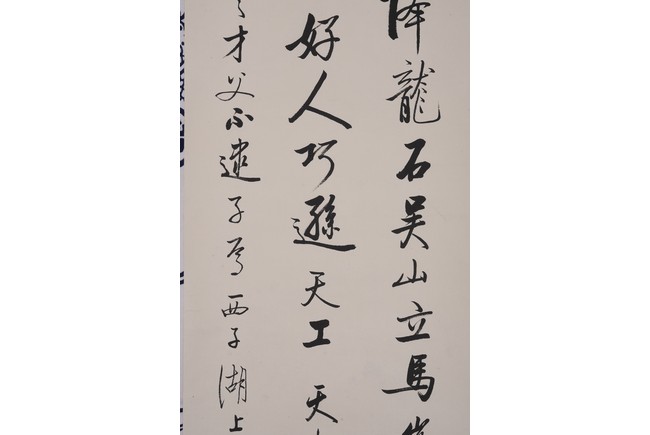 降龍石吳山立馬
好人巧遜天工天
才父不逮子西子湖上